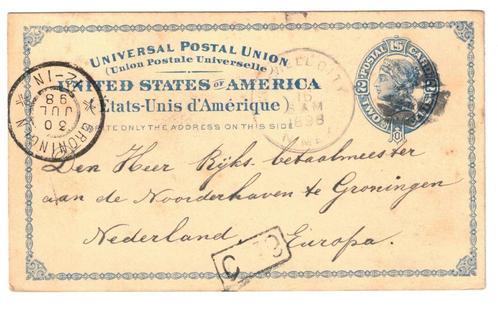 UNIVERSAL POSTAL UNION
(Union Postale Universelle)
UNITED STATES OF AMERICA
(États-Unis d'Amérique)
WRITE ONLY THE ADDRESS ON THIS SIDE
CITY
AM
1898
POSTAL CARD
TWO
GRONINGEN
30
JUL
98
Den Heer Rijks-betaalmeester
aan de Noorderhaven te Groningen
Nederland Europa.
C